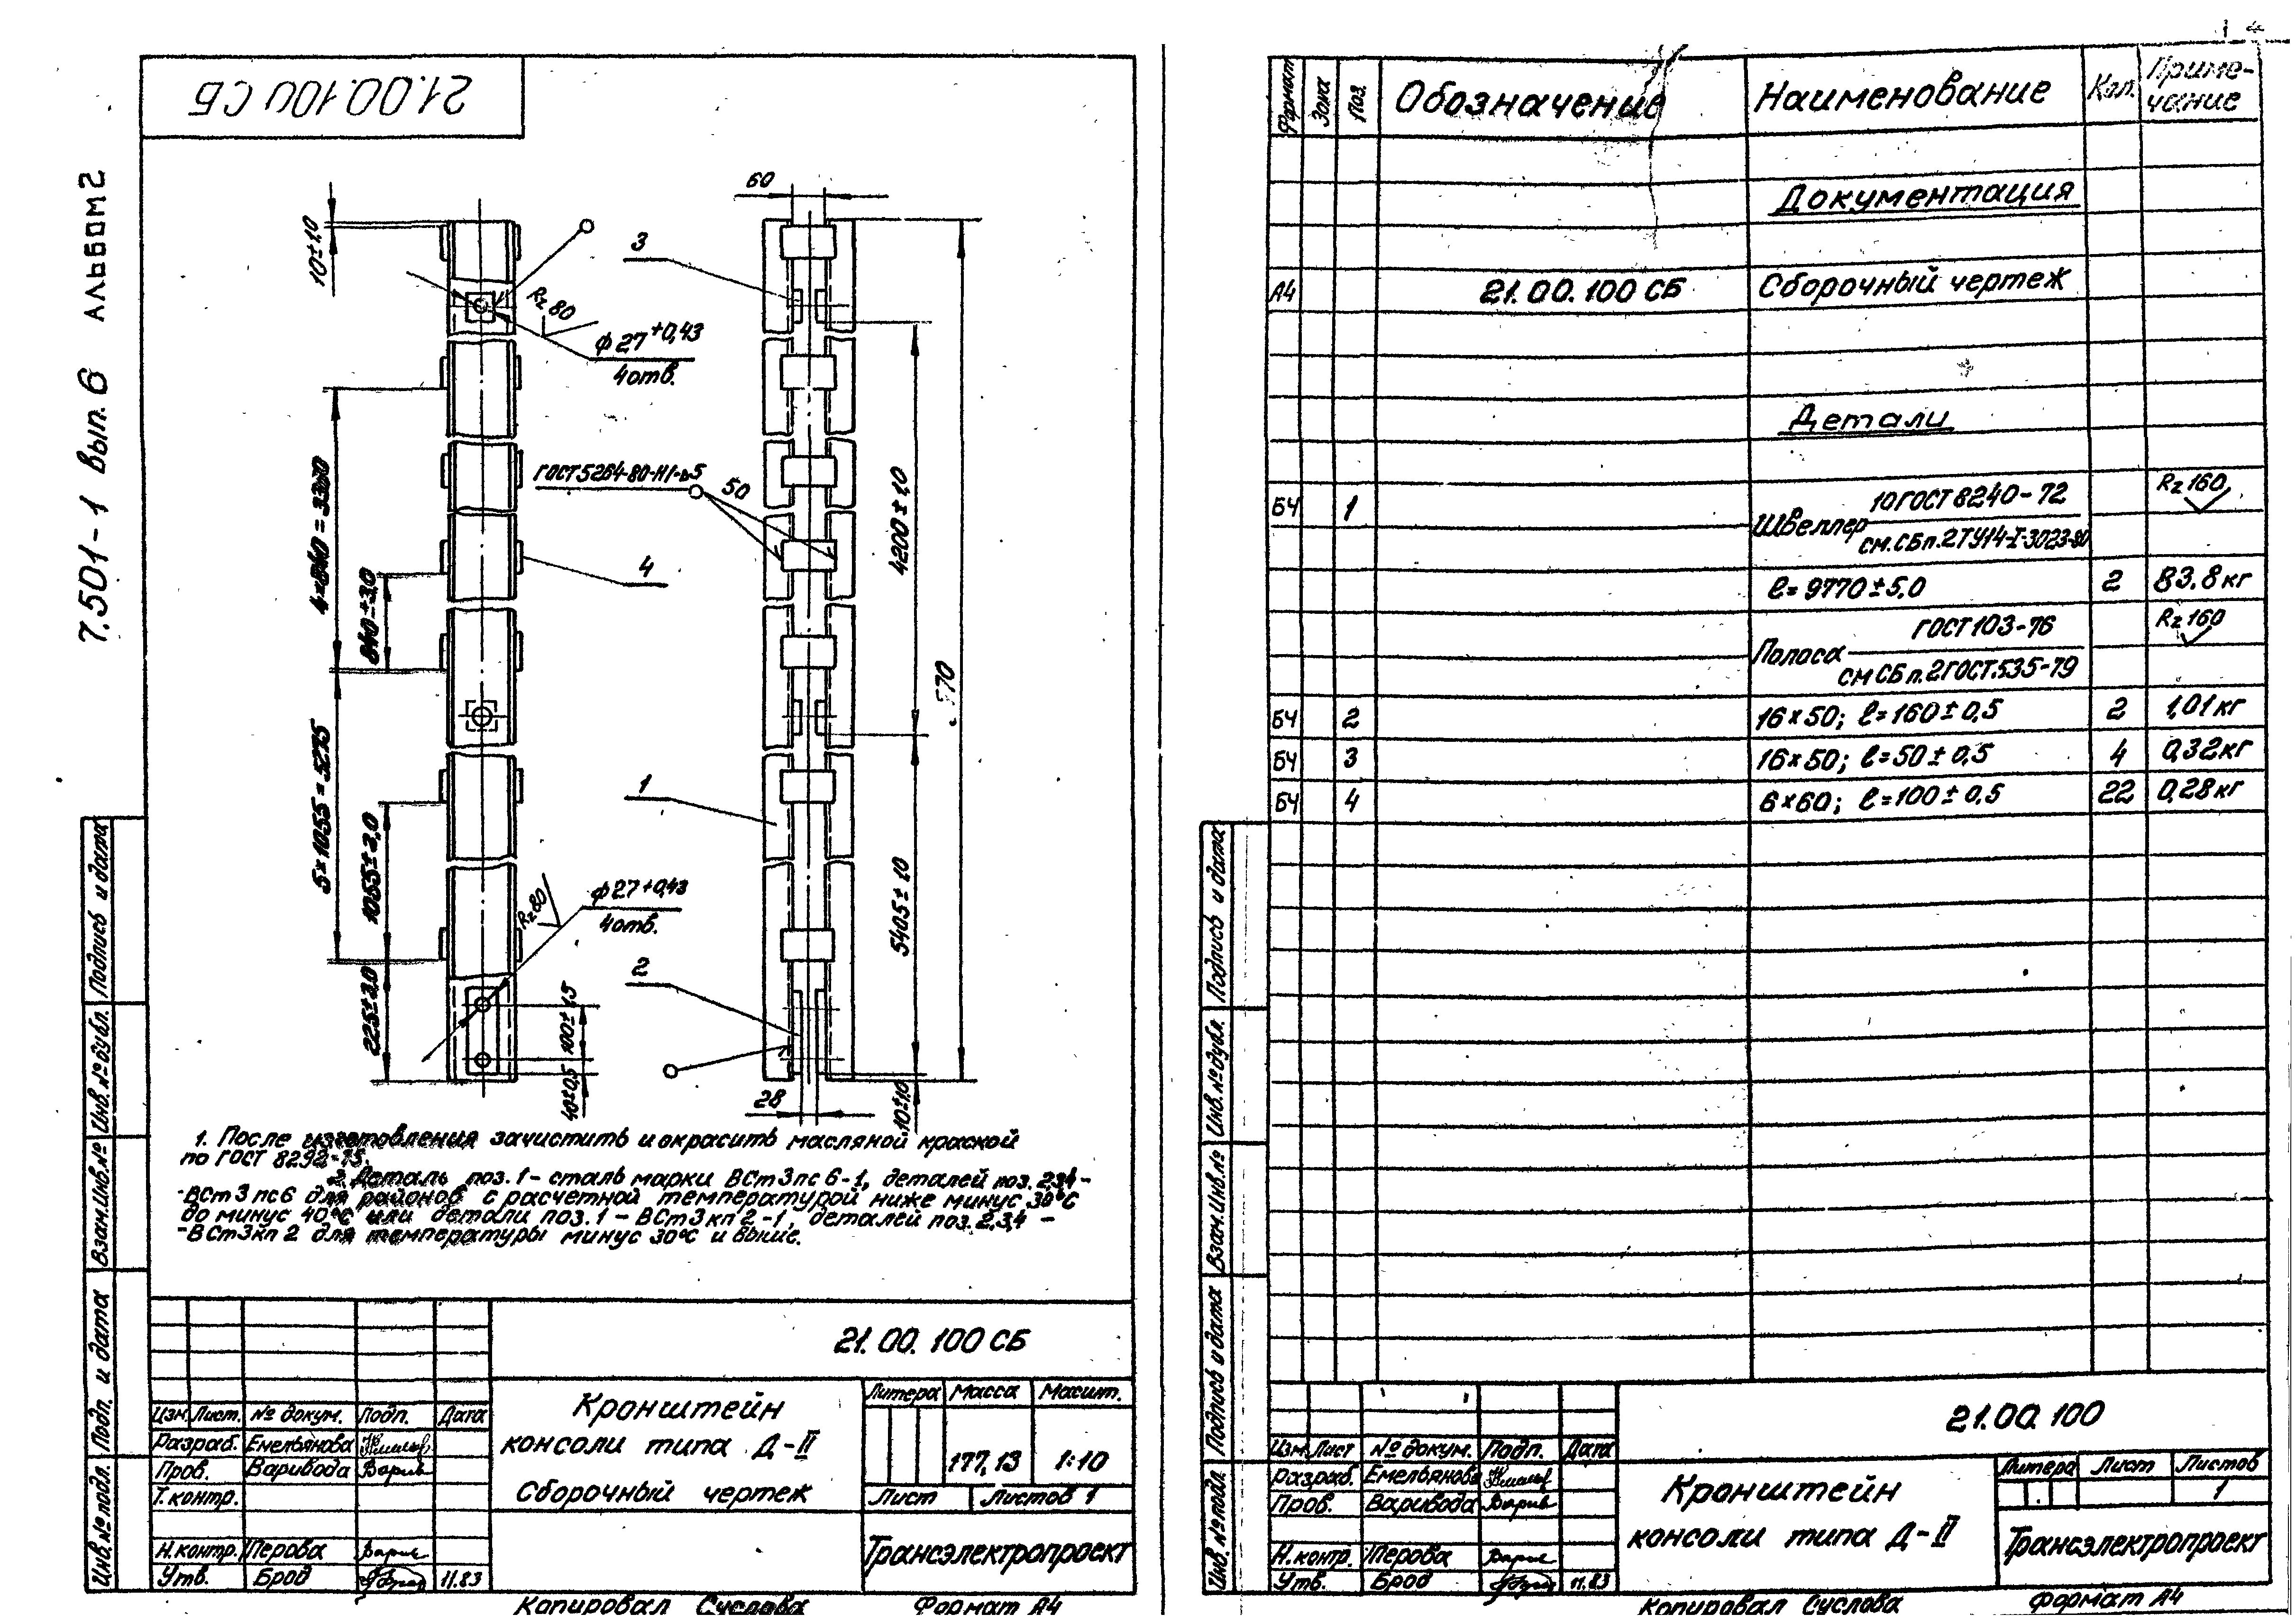 21.00.100 СБ
7.501-1 Вып. 6 Альбом 2
10±1,0
60
3
Rz 80
ф27 +0,43
4 отв.
ГОСТ 5264-80-Н1-
5
50
4
4×840 = 3360
840±3,0
4200±1,0
5×1055 = 5275
1055±2,0
1
Rz80
ф27 +0,43
4 отв.
2
5405±10
225±2,0
100±1,5
40±0,5
28
10±1,0
1. После изготовления зачистить и окрасить масляной краской
по ГОСТ 8292-75.
2. Деталь поз. 1 - сталь марки ВСт3пс6-1, деталей поз. 2,3,4 -
-ВСт3пс6 для районов с расчетной температурой ниже минус 30°С
до минус 40°С или детали поз. 1 - ВСт3кп2-1, деталей поз. 2,3,4 -
-ВСт3кп2 для температуры минус 30°С и выше.
Подпись и дата
Инв. № дубл.
Взам. Инв. №
Подп. и дата
Инв. № подл.
21.00.100 СБ
Изм. Лист. № докум. Подп. Дата
Разраб. Емельянова
Пров. Варивода
Т. контр.
Н. контр. Перова
Утв. Брод 11.83
Кронштейн
консоли типа Д-II
Сборочный чертеж
Литера Масса Масшт.
177,13 1:10
Лист Листов 1
Трансэлектропроект
Копировал Суслова Формат А4
Формат Зона Поз. Обозначение Наименование Кол. Приме-
чание
Документация
А4 21.00.100 СБ Сборочный чертеж
Детали
БЧ 1 Швеллер 10 ГОСТ 8240-72 Rz 160
см. СБ п.2 ТУ14-I-3023-80
ℓ=9770±5,0 2 83,8 кг
Полоса ГОСТ 103-76 Rz 160
см СБ п.2 ГОСТ 535-79
БЧ 2 16×50; ℓ=160±0,5 2 1,01 кг
БЧ 3 16×50; ℓ=50±0,5 4 0,32 кг
БЧ 4 6×60; ℓ=100±0,5 22 0,28 кг
Подпись и дата
Инв. № дубл.
Взам. Инв. №
Подпись и дата
Инв. № подл.
21.00.100
Изм. Лист № докум. Подп. Дата
Разраб. Емельянова
Пров. Варивода
Н. контр. Перова
Утв. Брод 11.83
Кронштейн
консоли типа Д-II
Литера Лист Листов
1
Трансэлектропроект
Копировал Суслова Формат А4